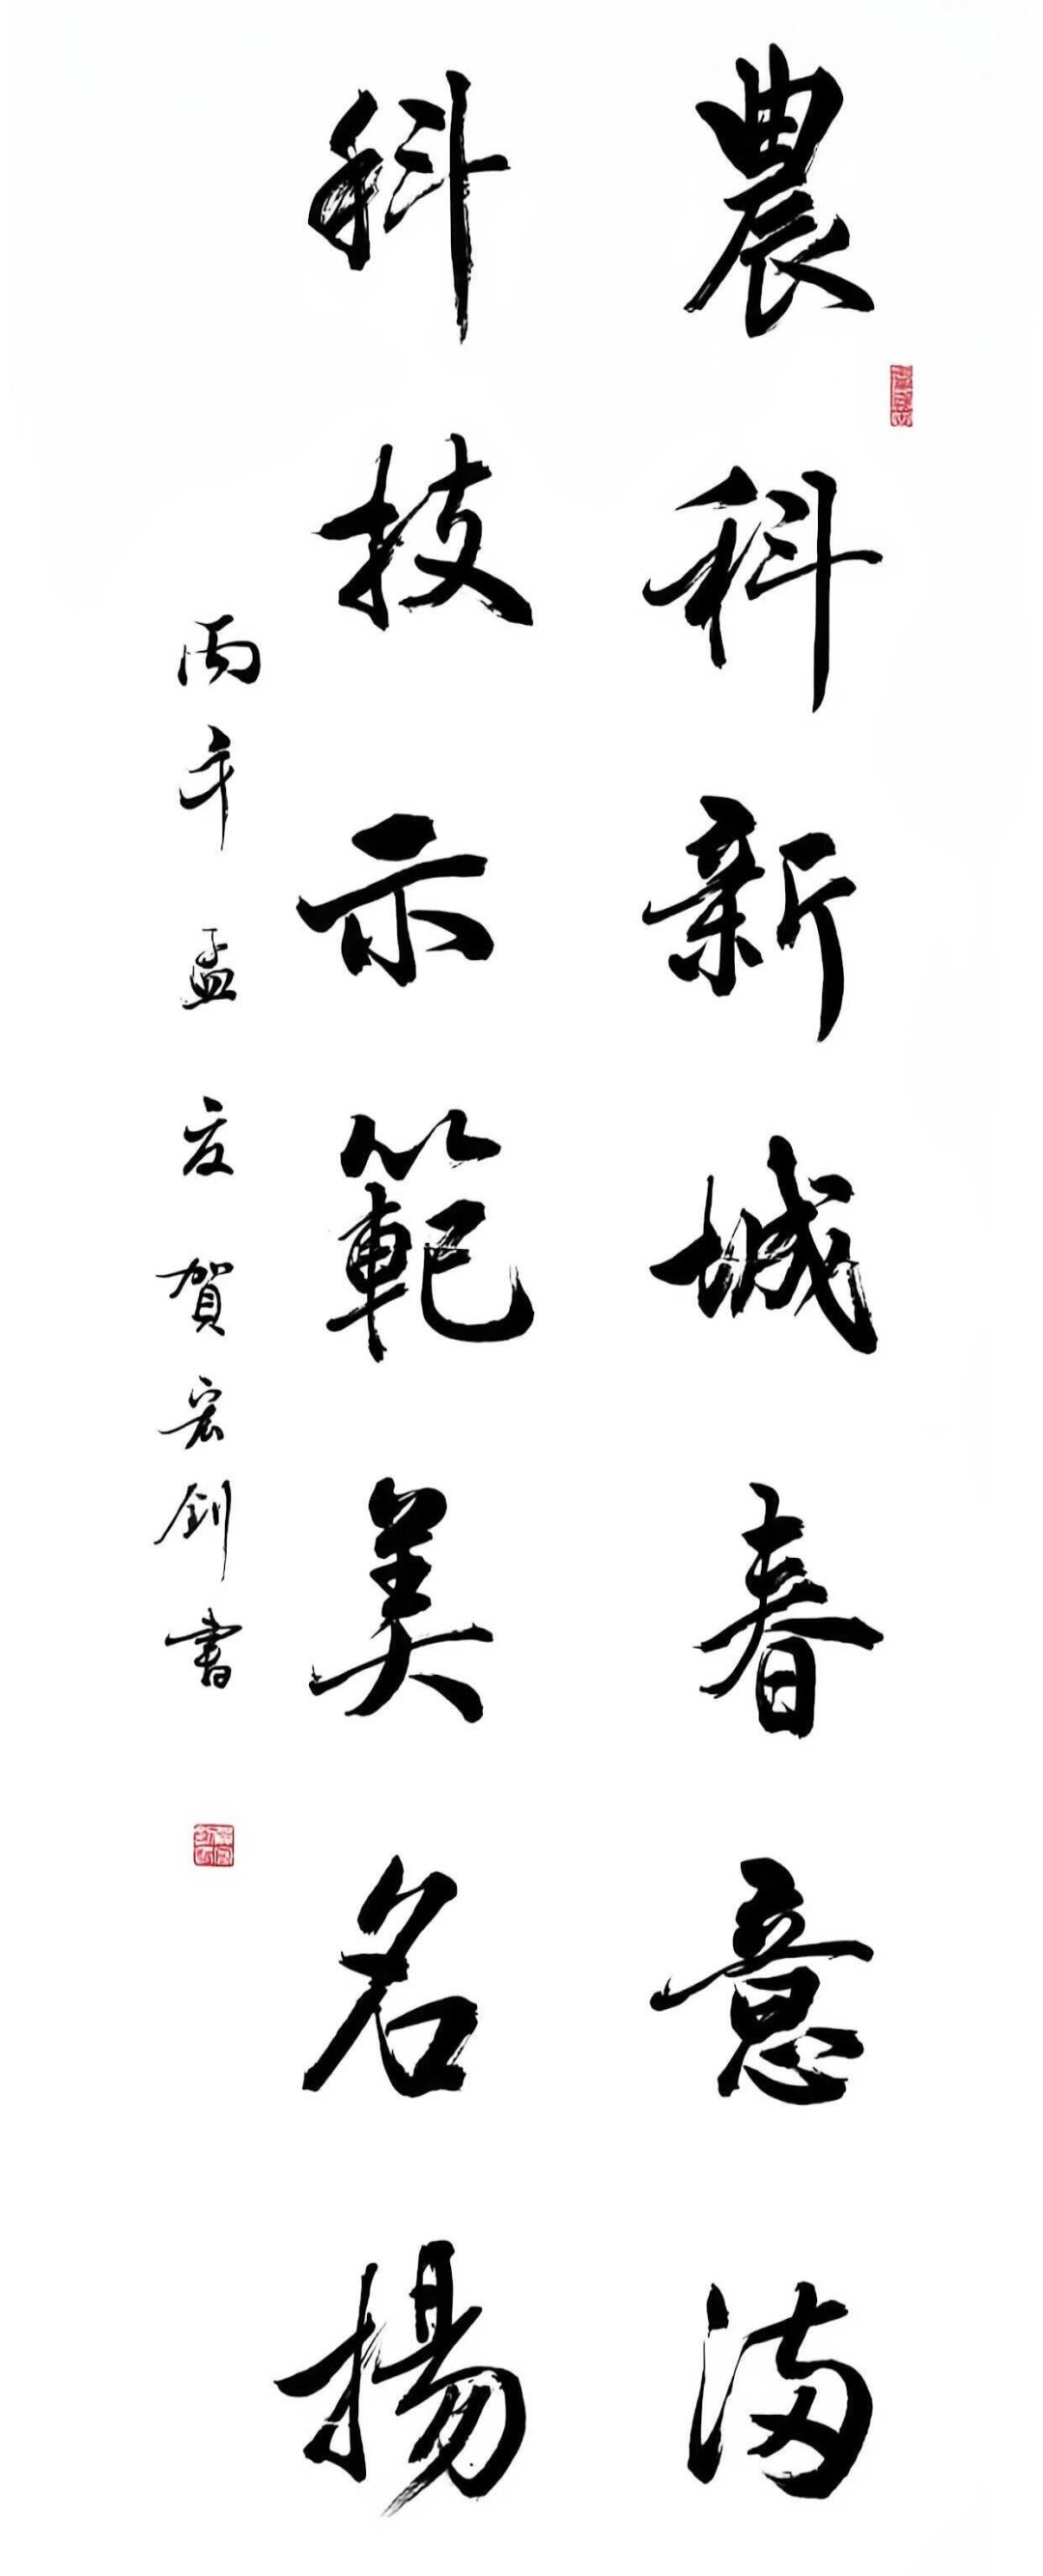 農科新城春意滿
科技示範美名揚
丙午孟夏賀宏釗書